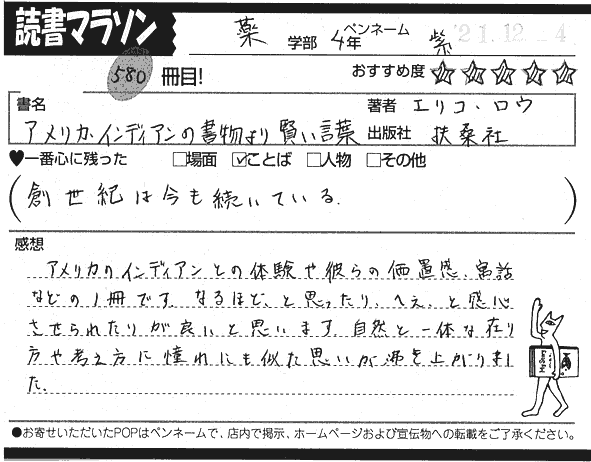 読書マラソン
薬 学部 4年 ペンネーム 紫 '21.12.-4
580 冊目! おすすめ度 ☆☆☆☆☆
書名 著者 エリコ・ロウ
アメリカ・インディアンの書物より賢い言葉 出版社 扶桑社
♥一番心に残った □場面 ☑ことば □人物 □その他
(創世紀は今も続いている.)
感想
アメリカのインディアンとの体験や彼らの価置感、寓話
などの1冊です。なるほど、と思ったり、へぇ、と感心
させられたりが良いと思います。自然と一体な在り
方や考え方に憧れにも似た思いが沸き上がりまし
た.
●お寄せいただいたPOPはペンネームで、店内で掲示、ホームページおよび宣伝物への転載をご了承ください。